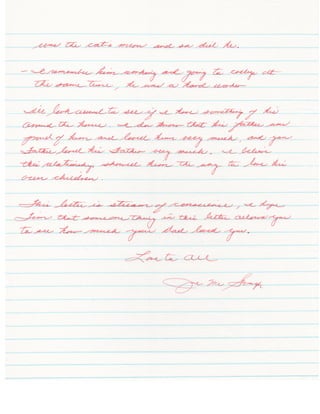 was the cat's meow and so did he.
- I remember him working and going to college at
the same time, he was a hard worker
I'll look around to see if I have something of his
around the house. I do know that his father was
proud of him and loved him very much, and your
Father loved his Father very much. I believe
this relationship showed him the way to love his
own children.
This letter is stream of conscience, I hope
Tom that something in this letter allows you
to see how much your Dad loved you.
Love to All
Joe Mc